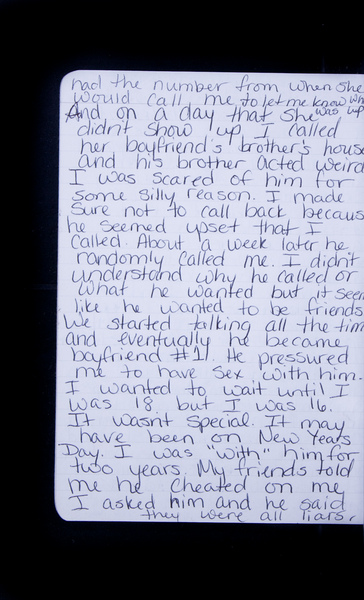 had the number from when she
would call me to let me know wh
And on a day that she was up
didn't show up I called
her boyfriend's brother's house
and his brother acted weird
I was scared of him for
some silly reason. I made
sure not to call back becaus
he seemed upset that I
called. About a week later he
randomly called me. I didn't
understand why he called or
what he wanted but it seem
like he wanted to be friends
We started talking all the tim
and eventually he became
boyfriend #1. He pressured
me to have sex with him.
I wanted to wait until I
was 18 but I was 16.
It wasn't special. It may
have been on New Years
Day. I was "with" him for
two years. My friends told
me he cheated on me
I asked him and he said
they were all liars.